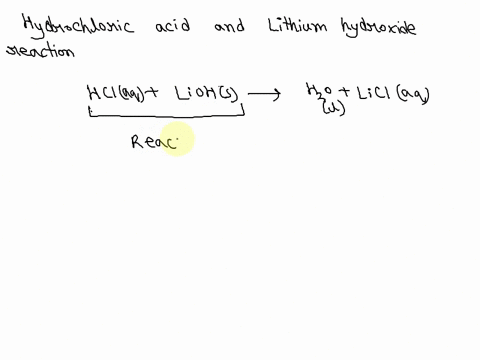 Hydrochloric acid and Lithium hydroxide
reaction
HCl(aq) + LiOH(s) ⟶ H₂O(l) + LiCl(aq)
Reac